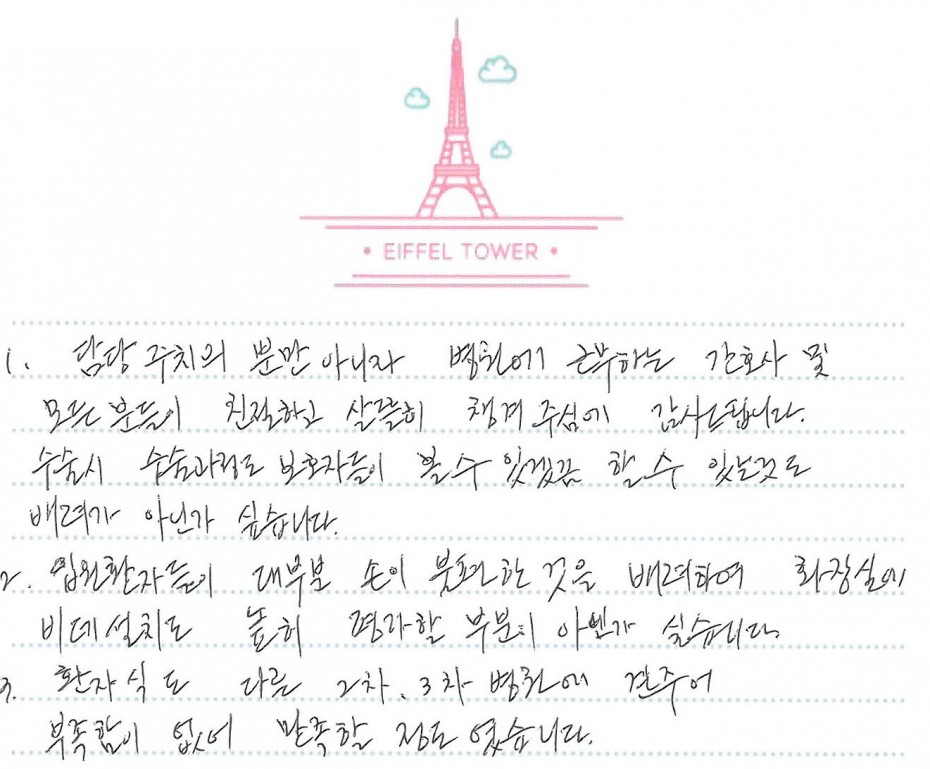 • EIFFEL TOWER •
1. 담당 주치의 뿐만 아니라 병원에 근무하는 간호사 및
모든 분들이 친절하고 살뜰히 챙겨 주심에 감사드립니다.
수술시 수술과정도 보호자들이 볼 수 있겠끔 할 수 있는것도
배려가 아닌가 싶습니다.
2. 입원환자들이 대부분 손이 불편한 것을 배려하여 화장실에
비데설치도 높히 평가할 부분이 아닌가 싶습니다.
3. 환자식도 다른 2차, 3차 병원에 견주어
부족함이 없어 만족할 정도 였습니다.